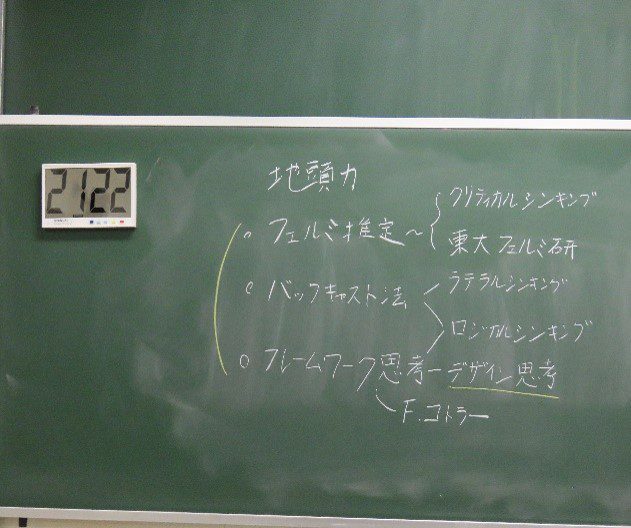 21:22
地頭力
○ フェルミ推定 〜 クリティカルシンキング
東大フェルミ研
○ バックキャスト法 ラテラルシンキング
ロジカルシンキング
○ フレームワーク思考 ー デザイン思考
F.コトラー